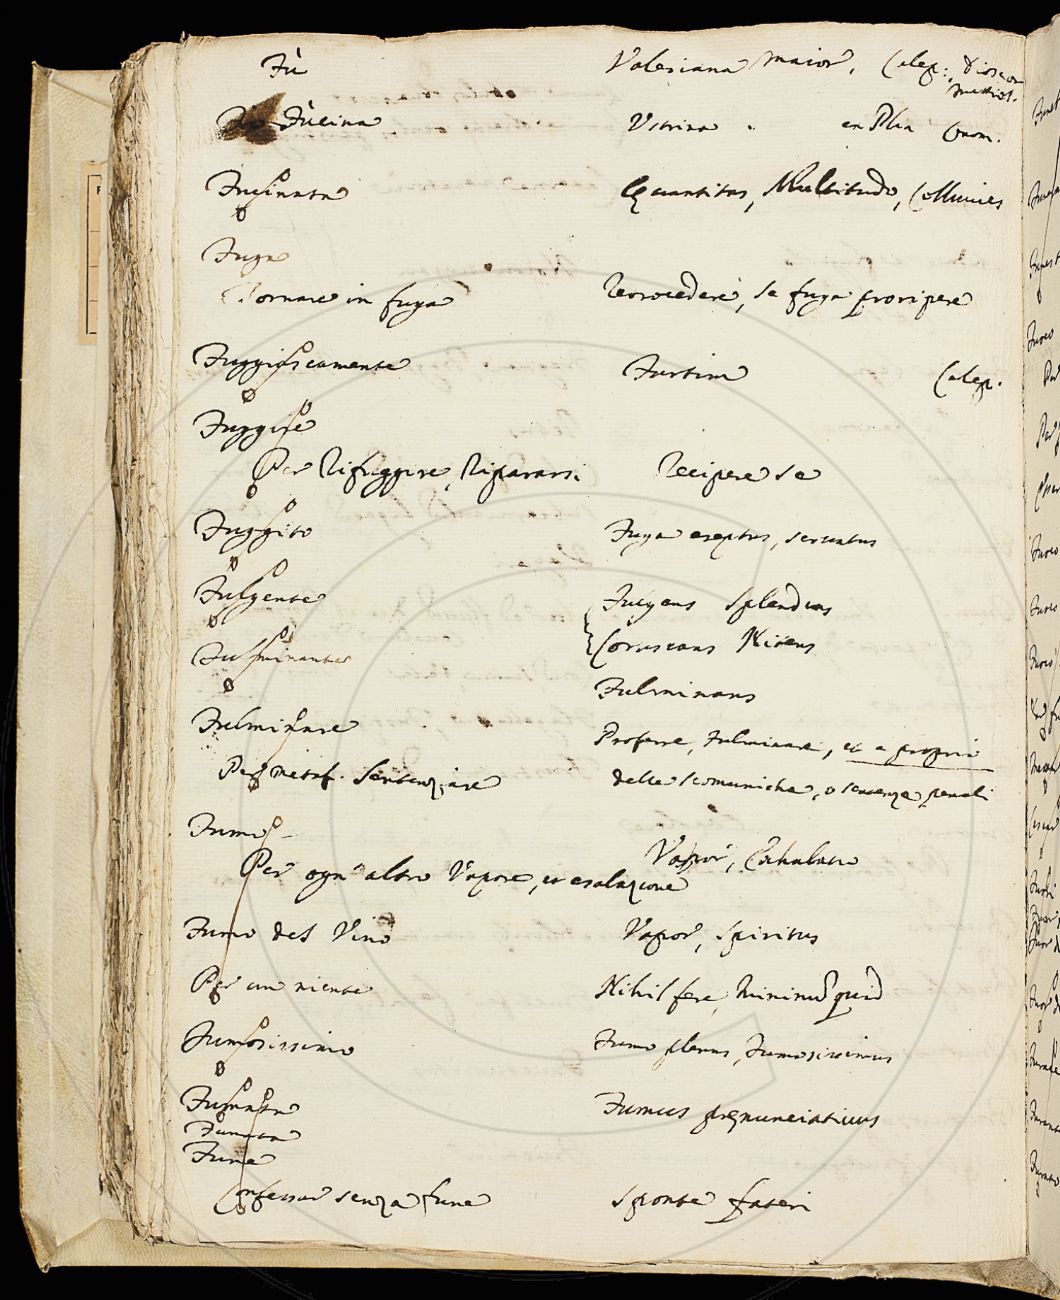 Fù Valeriana maior, Calep: Dioscor
Fucina Ustrina. en Plin
Fucinata Quantitas, Multitudo, Colluuies
Fuga
Tornare in fuga Retrocedere, se fuga proripere
Fuggiascamente Furtim Calep.
Fuggire
Per Rifuggire, Ripararsi Recipere se
Fuggito Fuga ereptus, seruatus
Fulgente Fulgens Splendens
Coruscans Nitens
Fulminante
Fulminans
Fulminare Proferre, Fulminare, et e proprio
Per metaf. Sentenziare delle scomuniche, o sentenze penali
Fumo
Vapor, Exhalatio
Per ogn' altro Vapore, et esalazione
Fumo del Vino Vapor, spiritus
Per un niente Nihil fere, minimu quid
Fumosissimo Fumo plenus, Fumosissimus
Fumata Fumus prenunciatiuus
Fune
Confessar senza fune Sponte fateri